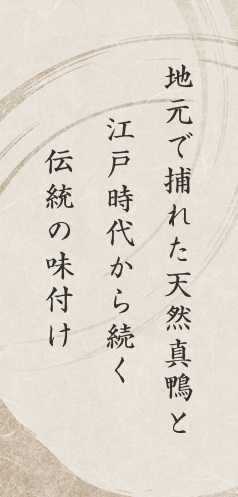 地元で捕れた天然真鴨と
江戸時代から続く
伝統の味付け